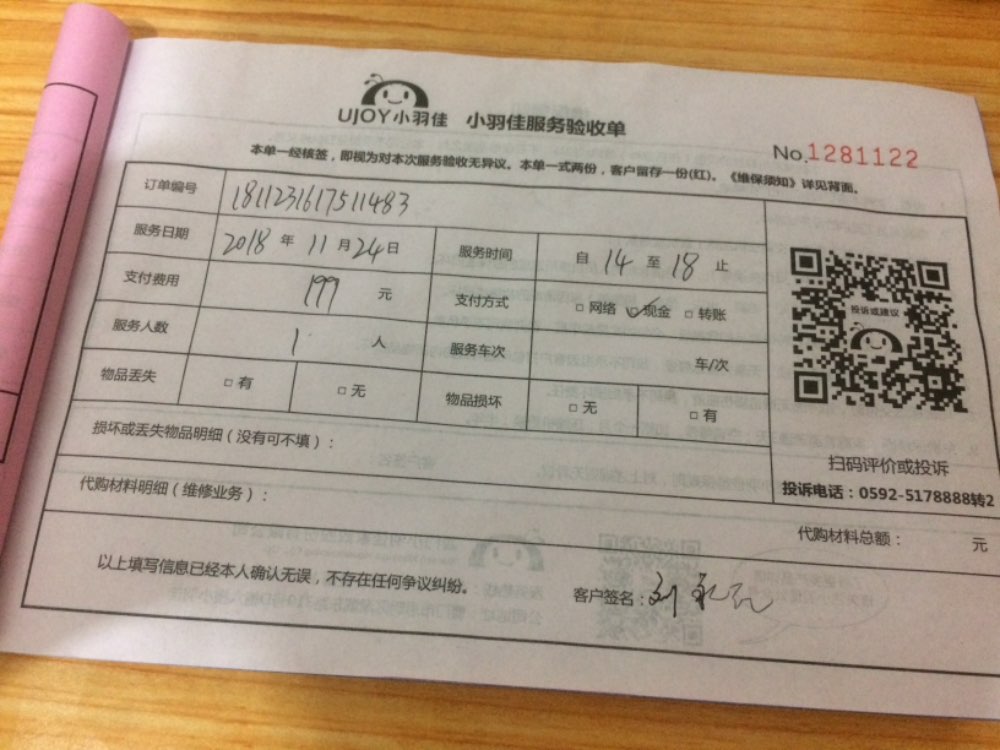 UJOY小羽佳 小羽佳服务验收单
No.1281122
本单一经核签，即视为对本次服务验收无异议。本单一式两份，客户留存一份(红)。《维保须知》详见背面。
订单编号 181123161751483
服务日期 2018 年 11 月 24 日 服务时间 自 14 至 18 止
支付费用 199 元 支付方式 □ 网络 ☑ 现金 □ 转账
服务人数 1 人 服务车次 车/次
物品丢失 □ 有 □ 无 物品损坏 □ 无 □ 有
损坏或丢失物品明细（没有可不填）：
代购材料明细（维修业务）：
投诉或建议
扫码评价或投诉
投诉电话：0592-5178888转2
代购材料总额： 元
以上填写信息已经本人确认无误，不存在任何争议纠纷。 客户签名：刘